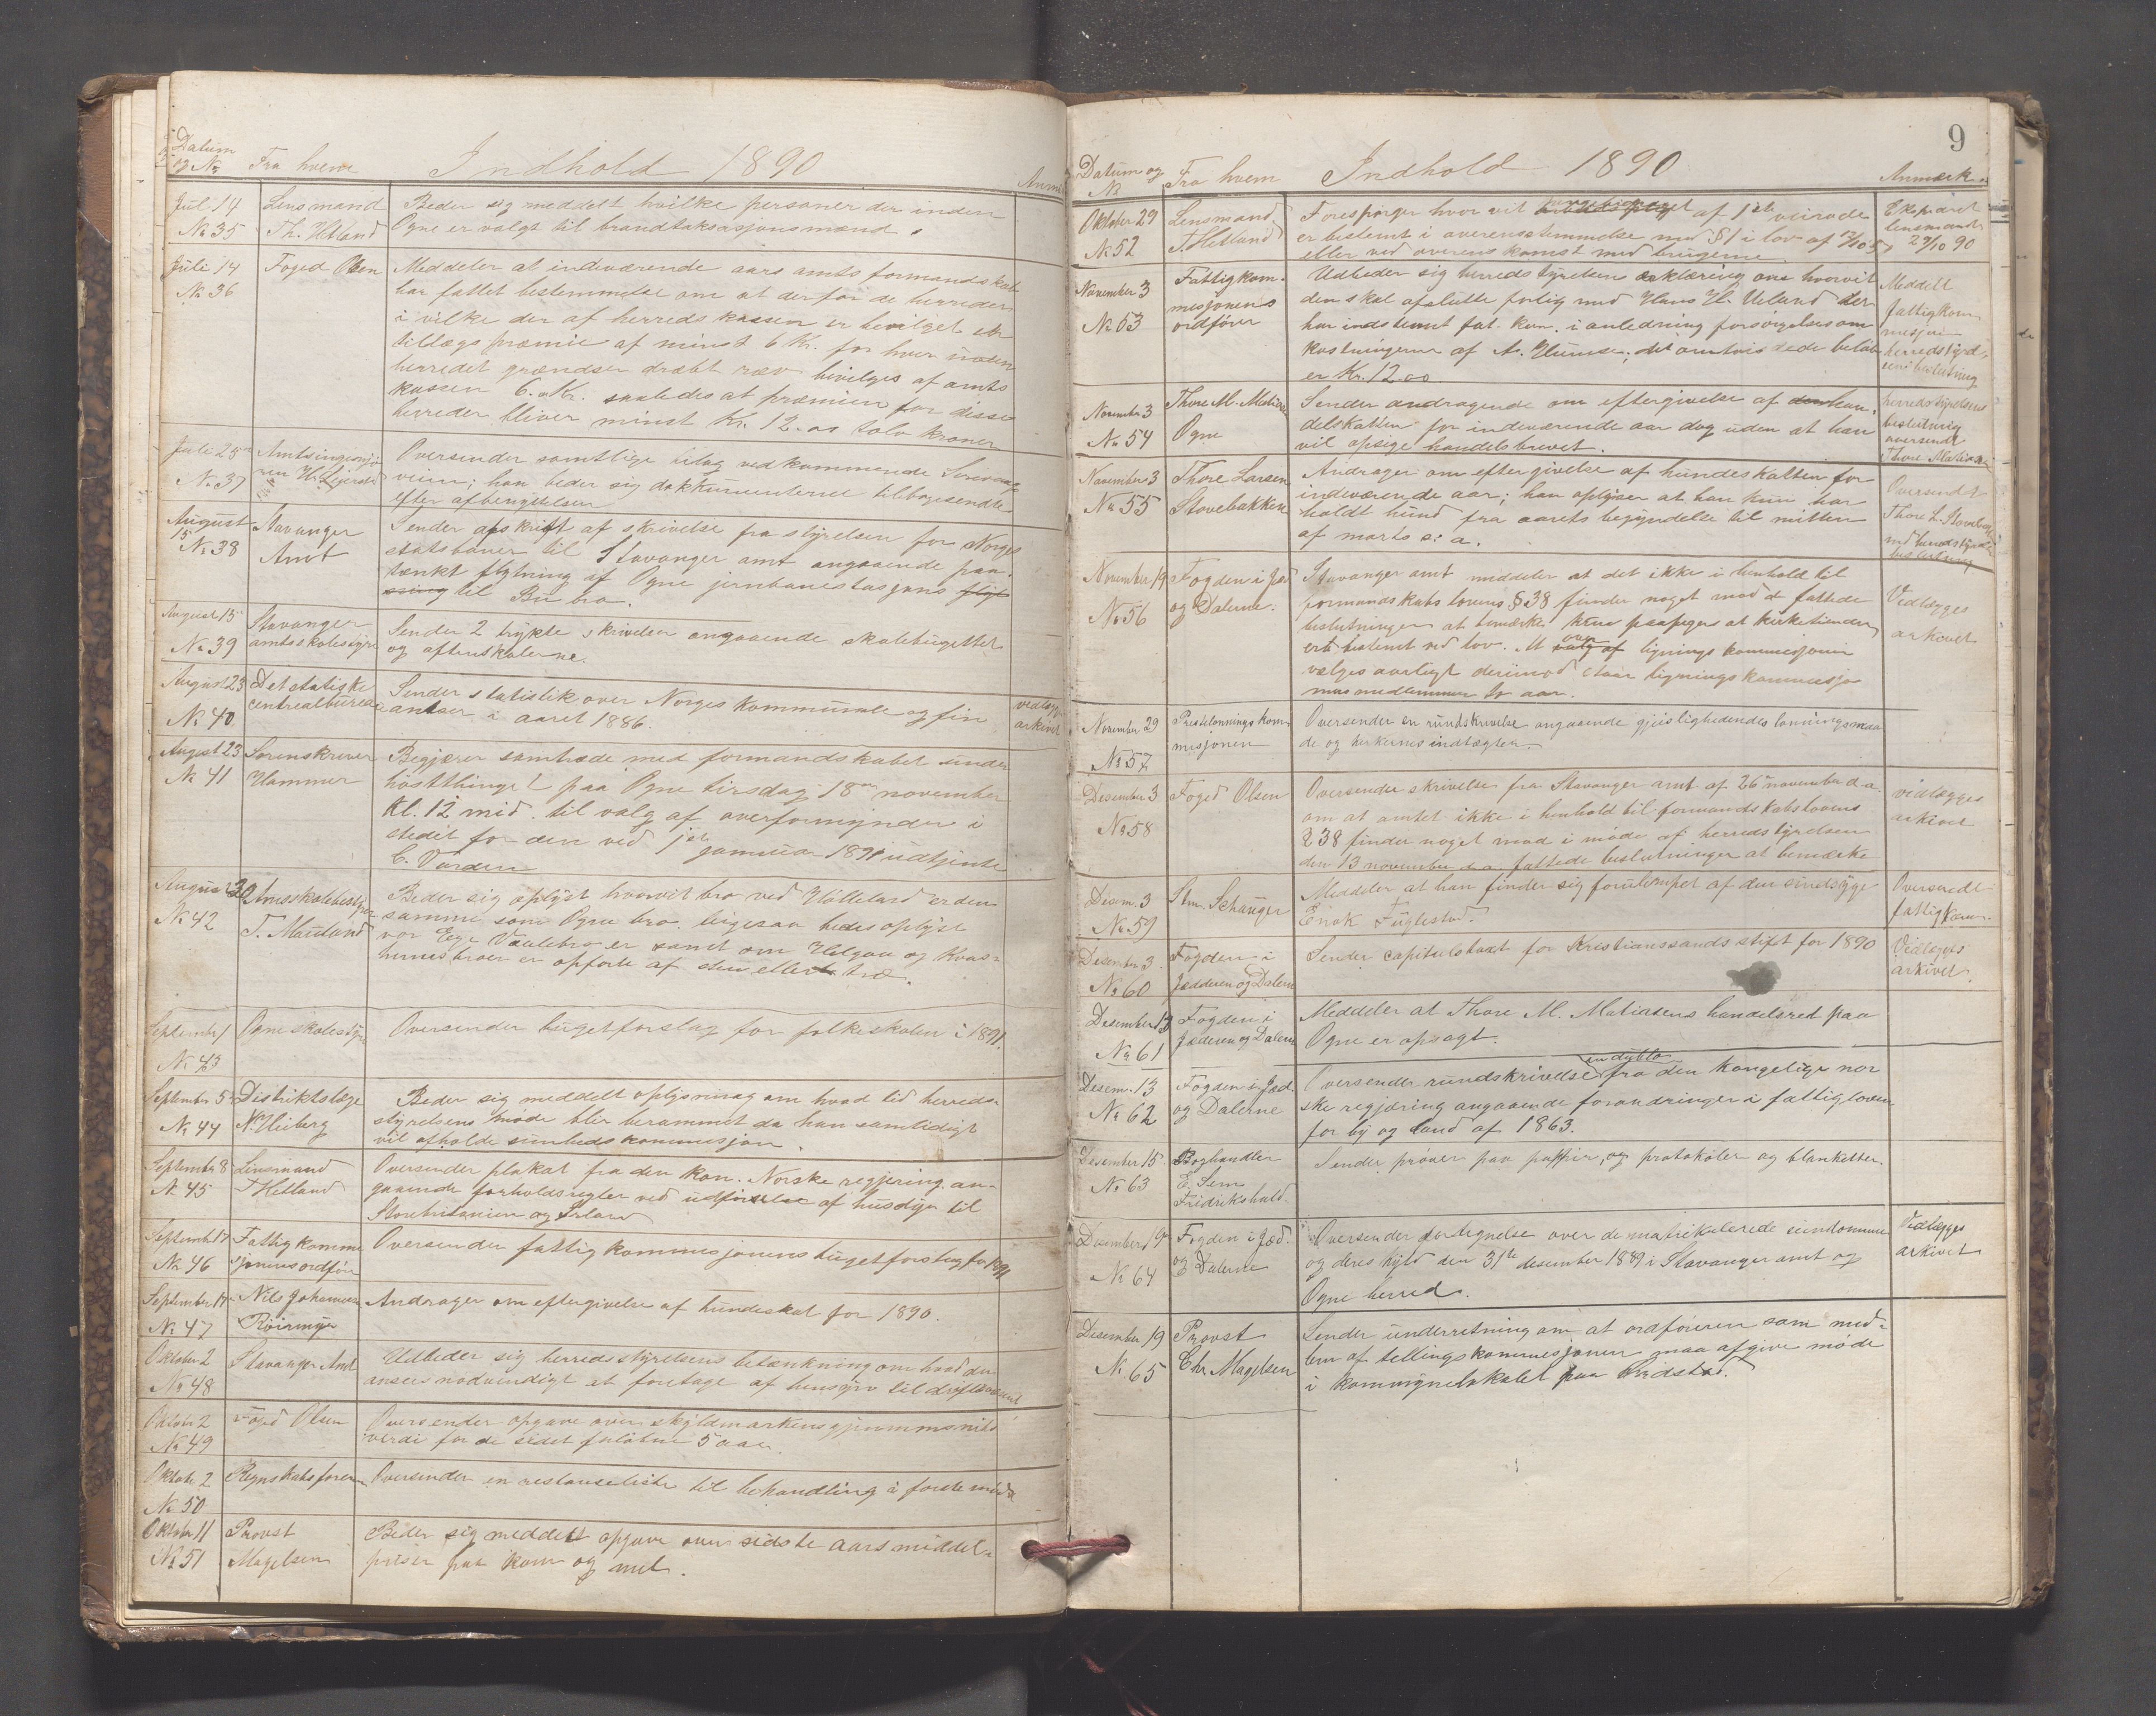 Datum og No Fra hvem Indhold 1890 Anm
Juli 14 Lensmand Beder sig meddelt hvilke personer der inden
No 35 Th. Hetland Ogne er valgt til brandtaksasjonsmænd.
Juli 14 Foged Olsen Meddeler at indeværende aars amts formandskab
No 36 har fattet bestemmelse om at der for de herreder
i vilke der af herreds kassen er bevilget en
tillægs præmie af minst 6 Kr. for hver inden
herredet grændser dræbt ræv bevilges af amts
kassen 6. Kr. saaledes at præmien for disse
herreder bliver minst Kr. 12.00 tolv kroner
Juli 25 Amtsingenjø Oversender samtlige bilag vedkommende
No 37 veien; han beder sig dokkumenterne tilbagesendte
efter afbenyttelsen
August 15 Stavanger Sender afskrift af skrivelse fra styrelsen for Norges
No 38 Amt statsbaner til Stavanger amt angaaende paa-
tænkt flytning af Ogne jernbanestasjons
til Bu bro.
August 15 Stavanger Sender 2 trykte skrivelser angaaende skolebugettet
No 39 amtsskolestyre og aftenskolerne.
August 23 Det statiske Sender statistik over Norges Kommunale og fin vedlægg
No 40 centralbureau antser i aaret 1886. arkivet
August 23 Sorenskriver Begjærer samtræde med formandskabet under
No 41 Hammer høstthinget paa Ogne tirsdag 18 november
Kl. 12 mid. til valg af overformynder i
stedet for den ved 1ste januar 1891 udtjente
C. Varden
August 30 Amtsskolebestyrer Beder sig oplyst hvorvit bro ved Hølleland er den
No 42 T. Mauland samme som Ogne bro. ligesaa bedes oplyst
vor Ege Vaulebro er samt om Helgaa og Kvas-
hernes broer er opførte af sten eller træ.
September 1 Ogne skolestyre Oversender bugetforslag for folkeskolen i 1891.
No 43
September 5 Distriktslæge Beder sig meddelt oplysning om hvad tid herreds-
No 44 N. Heiberg styrelsens møde blir berammet da han samtidigt
vil afholde sunheds kommesjon.
September 8 Lensmand Oversender plakat fra den kon. Norske regjering an-
No 45 T Hetland gaaende forholdsregler ved udførelse af husdyr til
Storebritanien og Irland
September 17 Fattigkomme Oversender fattigkommesjonens bugetforslag for 1891
No 46 sjonens ordfører
September 17 Nils Johannesen Andrager om eftergivelse af hundeskat for 1890.
No 47
Oktober 2 Stavanger Amt Udbeder sig herredsstyrelsens betænkning om hvad den
No 48 anser nødvendigt at foretage af hensyn til
Oktober 2 Foged Olsen Oversender opgave over skyldmarkens gjennomsnits
No 49 verdi for de sidst forløbne 5 aar.
Oktober 2 Regnskabsføreren Oversender en restanseliste til behandling i første møde
No 50
Oktober 11 Provst Beder sig meddelt opgave over sidste aars middel-
No 51 Magelsen priser paa korn og mel.
9
Datum og No Fra hvem Indhold 1890 Anmærk.
Oktober 29 Lensmand Forespørger hvor vit af 1ste veirode Ekspederet
No 52 T Hetland er bestemt i overensstemmelse med § 1 i lov af lensmand
eller ved overens komst med brugerne. 29/10 90
November 3 Fattigkom- Udbeder sig herredsstyrelsens erklæring om hvorvit Meddelt
No 53 mesjonens den skal afslutte forlig med Hans H. Ueland der fattigkom
ordfører har indstemt fat. kom. i anledning forsørgelsesom mesjon
kostningerne af A. Humse; det omtvistede beløb herredsstyrel-
er Kr. 12.00 sens beslutning
November 3 Thore M. Matias Sender andragende om eftergivelse af han- herredsstyrelsens
No 54 Ogne delskatten for indeværende aar dog uden at han beslutning
vil opsige handelsbrevet. oversendt
Thore Matiasen
November 3 Thore Larsen Andrager om eftergivelse af hundeskatten for Oversendt
No 55 Stovebakken indeværende aar; han oplyser at han kun har Thore L. Stovebak
holdt hund fra aarets begyndelse til mitten med herredsstyrelsens
af marts s: a. beslutning
November 19 Fogden i Jæd Stavanger amt meddeler at det ikke i henhold til Vedlægges
No 56 og Dalerne. formandskabs lovens § 38 finder noget mod de fattede arkivet
beslutninger at bemærke kun paapeges at kirketienden
er bestemt ved lov. At over lignings kommesjonen
vælges aarligt derimod staar lignings kommesjo
nens medlemmer to aar.
November 29 Prestelønnings kom- Oversender en rundskrivelse angaaende gjeistlighedens lønningsmaa
No 57 misjonen de og kirkernes indtægter
Desember 3 Foged Olsen Oversender skrivelse fra Stavanger amt af 26 november d. a. vedlægges
No 58 om at amtet ikke i henhold til formandskabslovens arkivet
§ 38 finder noget mod i møde af herredsstyrelsen
den 13 november d. a. fattede beslutninger at bemærke
Desem. 3 Stm. Schanger Meddeler at han finder sig forulempet af den sindsyge Oversendt
No 59 Enok Fuglestad. fattigkom.
Desember 3 Fogden i Sender capitulstaxt for Kristianssands stift for 1890 Vedlægges
No 60 Jædderen og Dalern arkivet.
Desember 13 Fogden i Meddeler at Thore M. Matiasens handelsret paa
No 61 Jæderen og Dalern Ogne er opsagt.
Desem. 13 Fogden i Jæd. Oversender rundskrivelse fra den kongelige nor
No 62 og Dalerne ske regjæring angaaende forandringer i fattigloven
for by og land af 1863.
Desember 15 Boghandler Sender prøver paa pappir, og protokoler og blanketter.
No 63 E. Sem
Fridrikshald
Desember 19 Fogden i Jæd. Oversender fortegnelse over de matrikulerede eiendomme Vedlægges
No 64 og Dalerne og deres skyld den 31te desember 1889 i Stavanger amt og arkivet
Ogne herred.
Desember 19 Provst Sender underretning om at ordføreren som med-
No 65 Chr. Magelsen lem af tellingskommesjonen maa afgive møde
i kommunelokalet paa Bridstad.